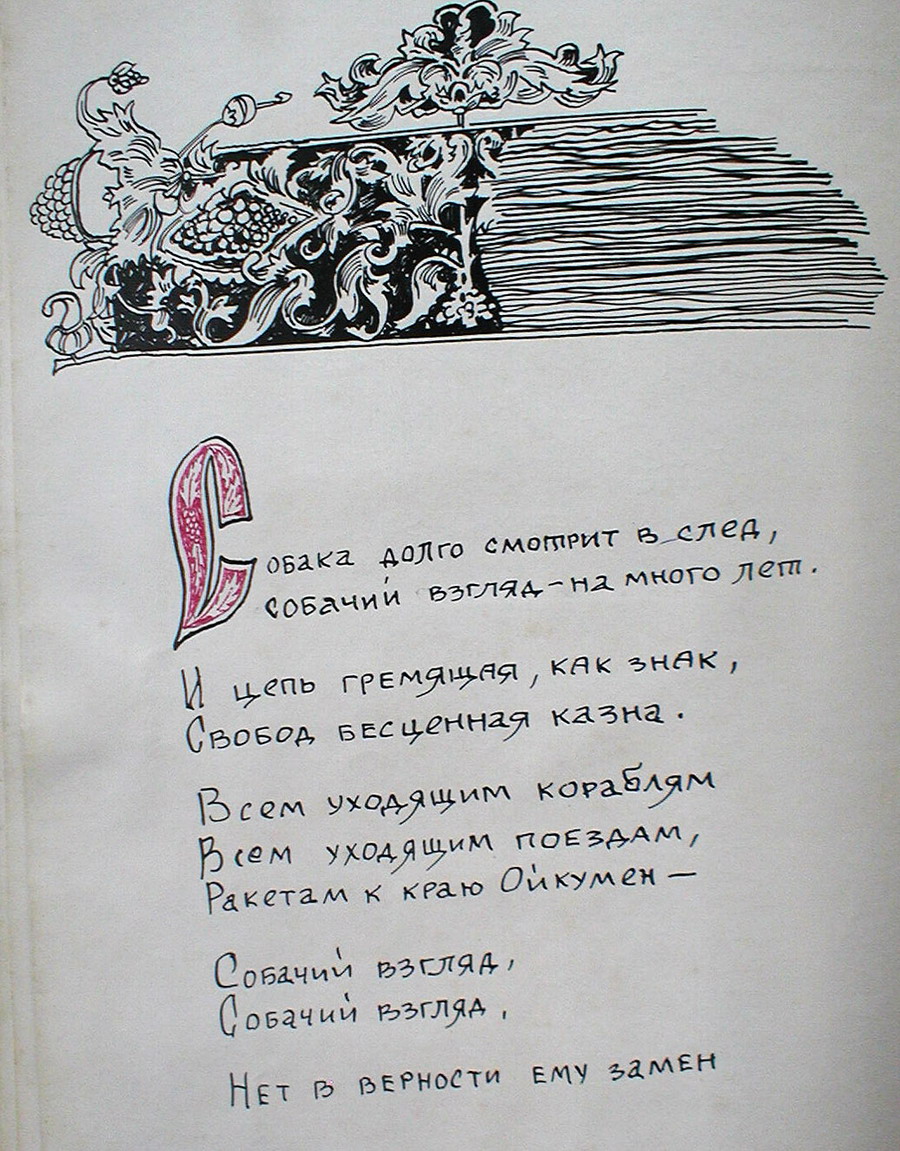 Собака долго смотрит в след,
Собачий взгляд – на много лет.
И цепь гремящая, как знак,
Свобод бесценная казна.
Всем уходящим кораблям
Всем уходящим поездам,
Ракетам к краю Ойкумен –
Собачий взгляд,
Собачий взгляд,
Нет в верности ему замен